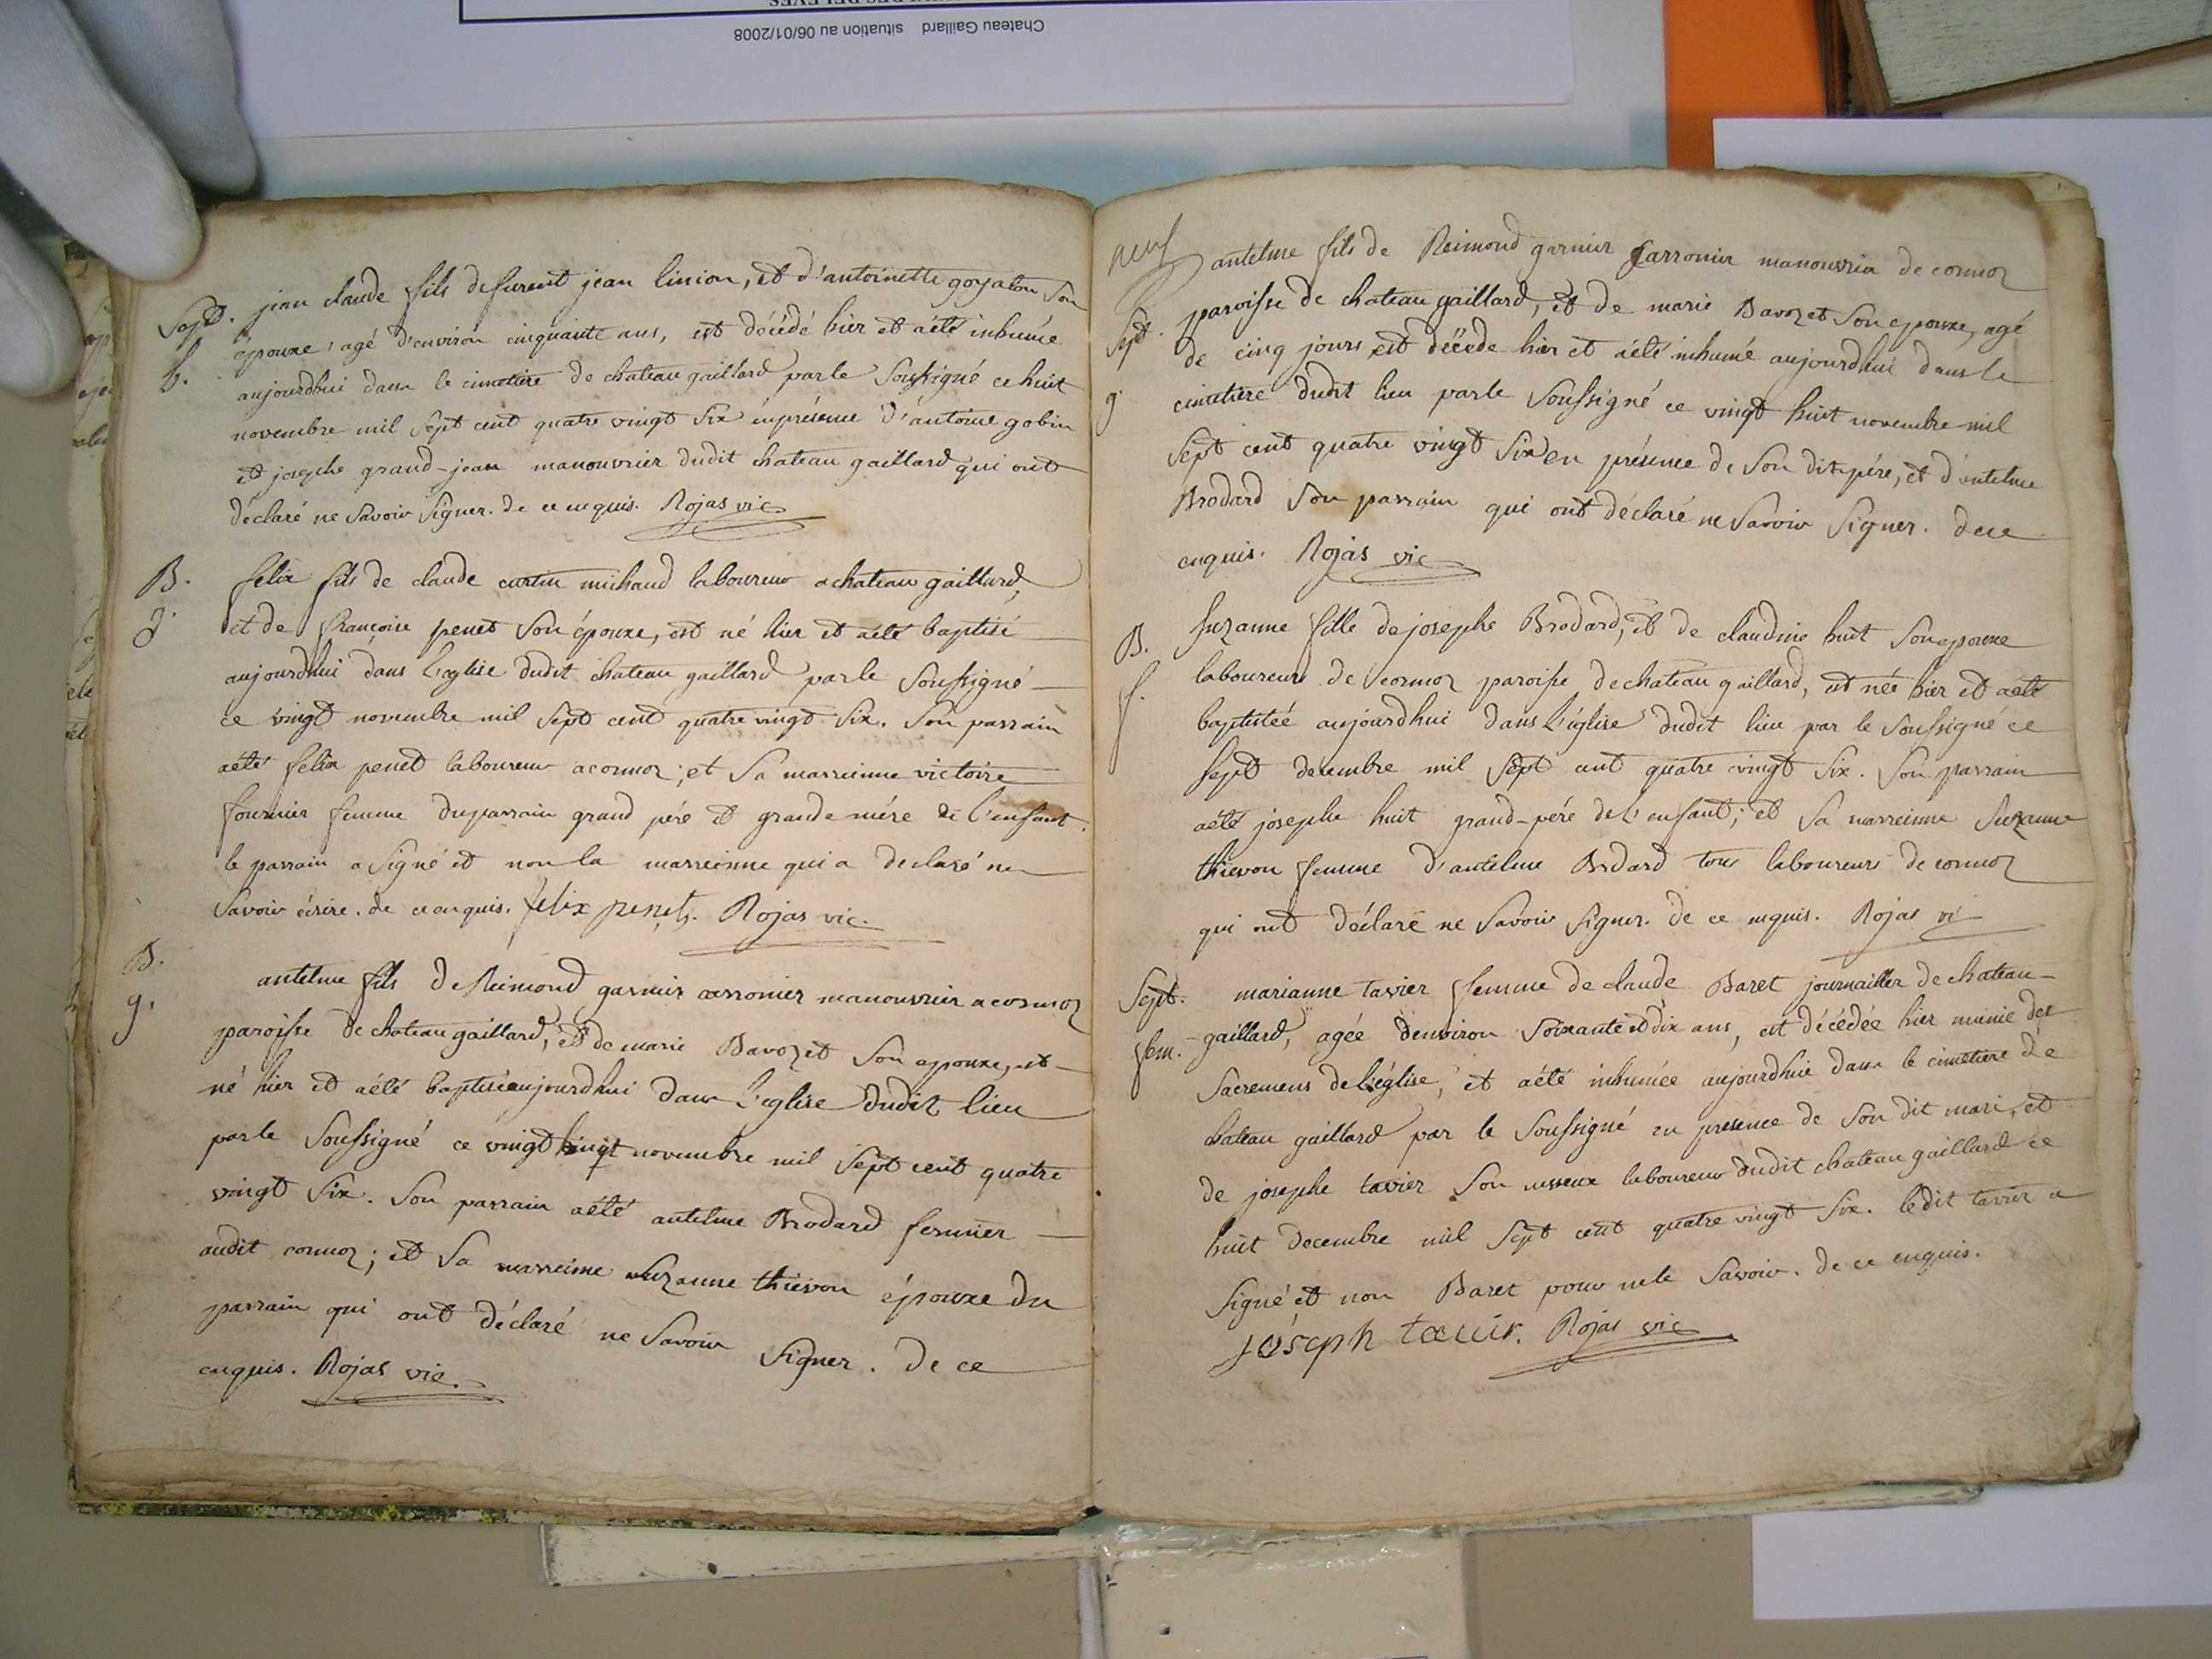 Chateau Gaillard situation au 06/01/2008
Sept.
h.
jean claude fils defurent jean linion, et d'antoinette goyaton son
épouxe, agé d'environ cinquante ans, est décédé hier et aété inhumé
aujourdhui dans le cimetiere de chateau gaillard par le soussigné ce huit
novembre mil sept cent quatre vingt six en présence d'antoine gobin
et josephe grand-jean manouvrier dudit chateau gaillard qui ont
déclaré ne savoir signer. de ce enquis. Rojas vic
B.
g.
felix fils de claude curtin michaud laboureur a chateau gaillard,
et de françoise penet son épouxe, est né hier et aété baptisé
aujourdhui dans l'eglise dudit chateau gaillard par le soussigné
ce vingt novembre mil sept cent quatre vingt six. son parrain
aété felix penet laboureur a cormoz; et sa marreinne victoire
fournier femme du parrain grand pére et grande mére de l'enfant.
le parrain a signé et non la marreinne qui a declaré ne
savoir écrire. de ce enquis. felix penet. Rojas vic.
B.
g.
antelme fils de Reimond garnier carronier manouvrier a cormoz
paroisse de chateau gaillard, et de marie Bavozet son epouxe, est
né hier et aété baptisé aujourdhui dans l'eglise dudit lieu
par le soussigné ce vingt novembre mil sept cent quatre
vingt six. son parrain aété antelme Brodard fermier
audit cormoz; et sa marreinne suzanne thievon épouxe du
parrain qui ont déclaré ne savoir signer. de ce
enquis. Rojas vic.
neuf
Sept.
g.
antelme fils de Reimond garnier Carronier manouvrier de cormoz
paroisse de chateau gaillard, et de marie Bavozet son epouxe, agé
de cinq jours est décéde hier et aété inhumé aujourdhui dans le
cimetiére dudit lieu par le soussigné ce vingt huit novembre mil
sept cent quatre vingt six en présence de son dit pére, et d'antelme
Brodard son parrain qui ont déclaré ne savoir signer. de ce
enquis. Rojas vic
B.
f.
suzanne fille de josephe Brodard, et de claudine huit son epouxe
laboureurs de cormoz paroisse de chateau gaillard, est née hier et aété
baptistéé aujourdhui dans l'église dudit lieu par le soussigné ce
sept decembre mil sept cent quatre vingt six. son parrain
aété josephe huit grand-pére de l'enfant; et sa marreinne suzanne
thievon femme d'antelme Brdard tous laboureurs de cormoz
qui ont déclaré ne savoir signer. de ce enquis. Rojas vi
Sept.
fem.
marianne tavier femme de claude Baret journaillier de chateau-
gaillard, agée denviron soixante et dix ans, est décédée hier munie des
sacremens de l'église, et aété inhumée aujourdhui dans le cimetiere de
chateau gaillard par le soussigné en presence de son dit mari, et
de josephe tavier son nesseux laboureur dudit chateau gaillard ce
huit decembre mil sept cent quatre vingt six. ledit tavier a
signé et non Baret pour ne le savoir. de ce enquis.
joseph Rojas vic